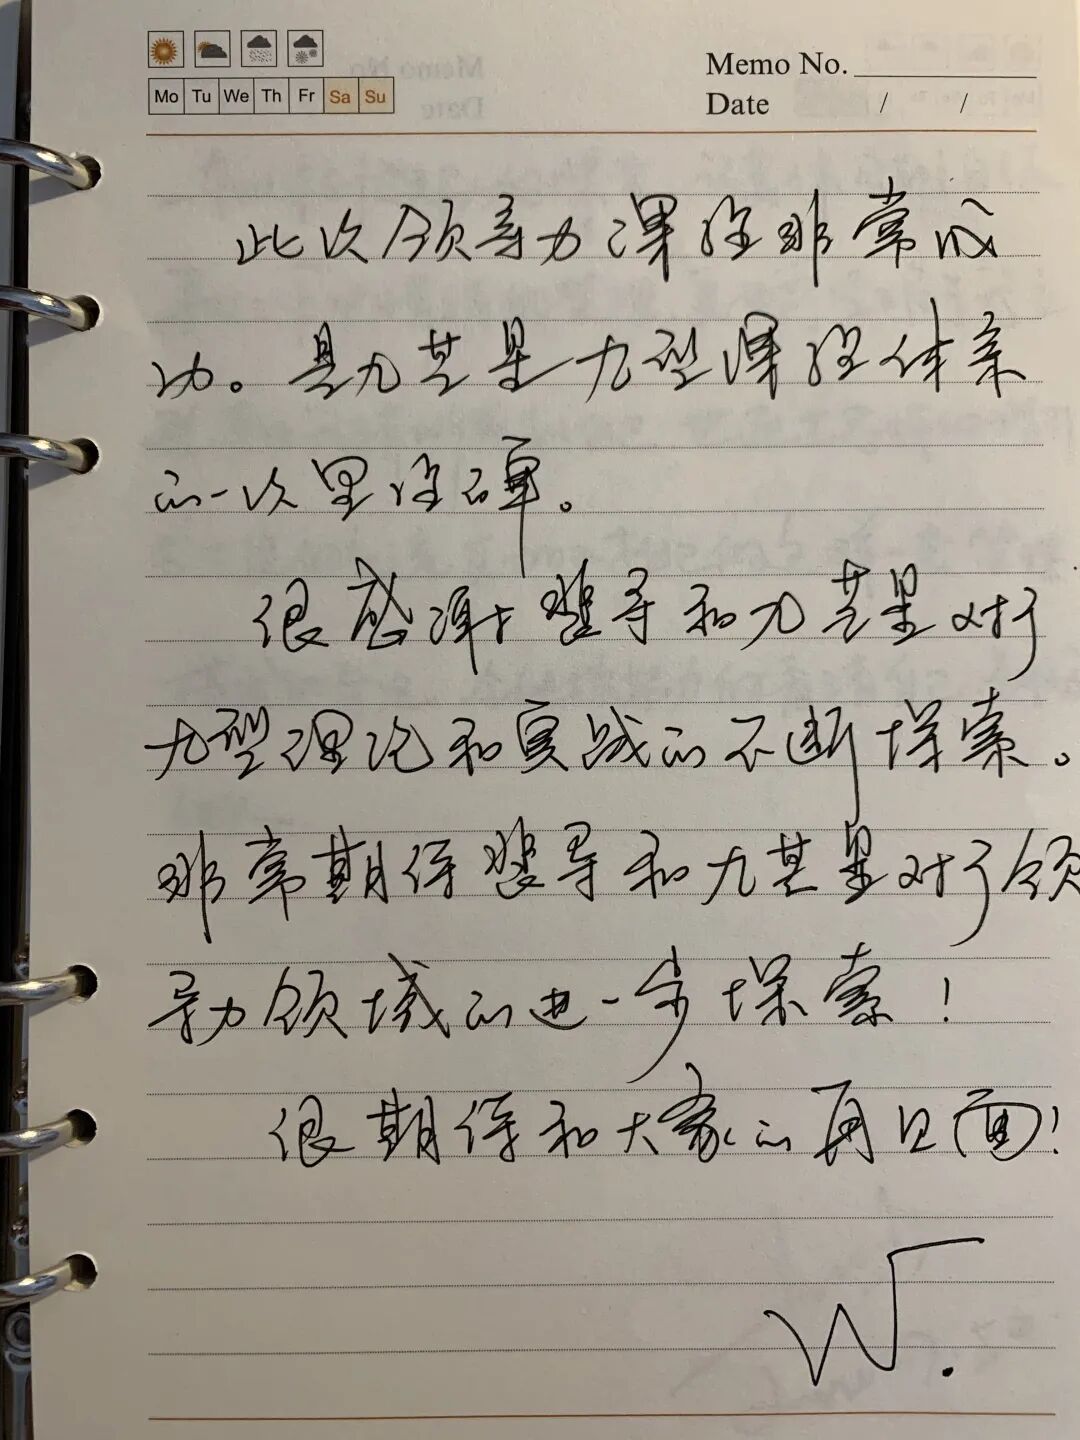 Memo No.
Mo Tu We Th Fr Sa Su
Date / /
此次领导力课程非常成
功。是九芒星九型课程体系
的一次里程碑。
很感谢斐导和九芒星对于
九型理论和实战的不断探索。
非常期待斐导和九芒星对于领
导力领域的进一步探索！
很期待和大家的再见面！
W.